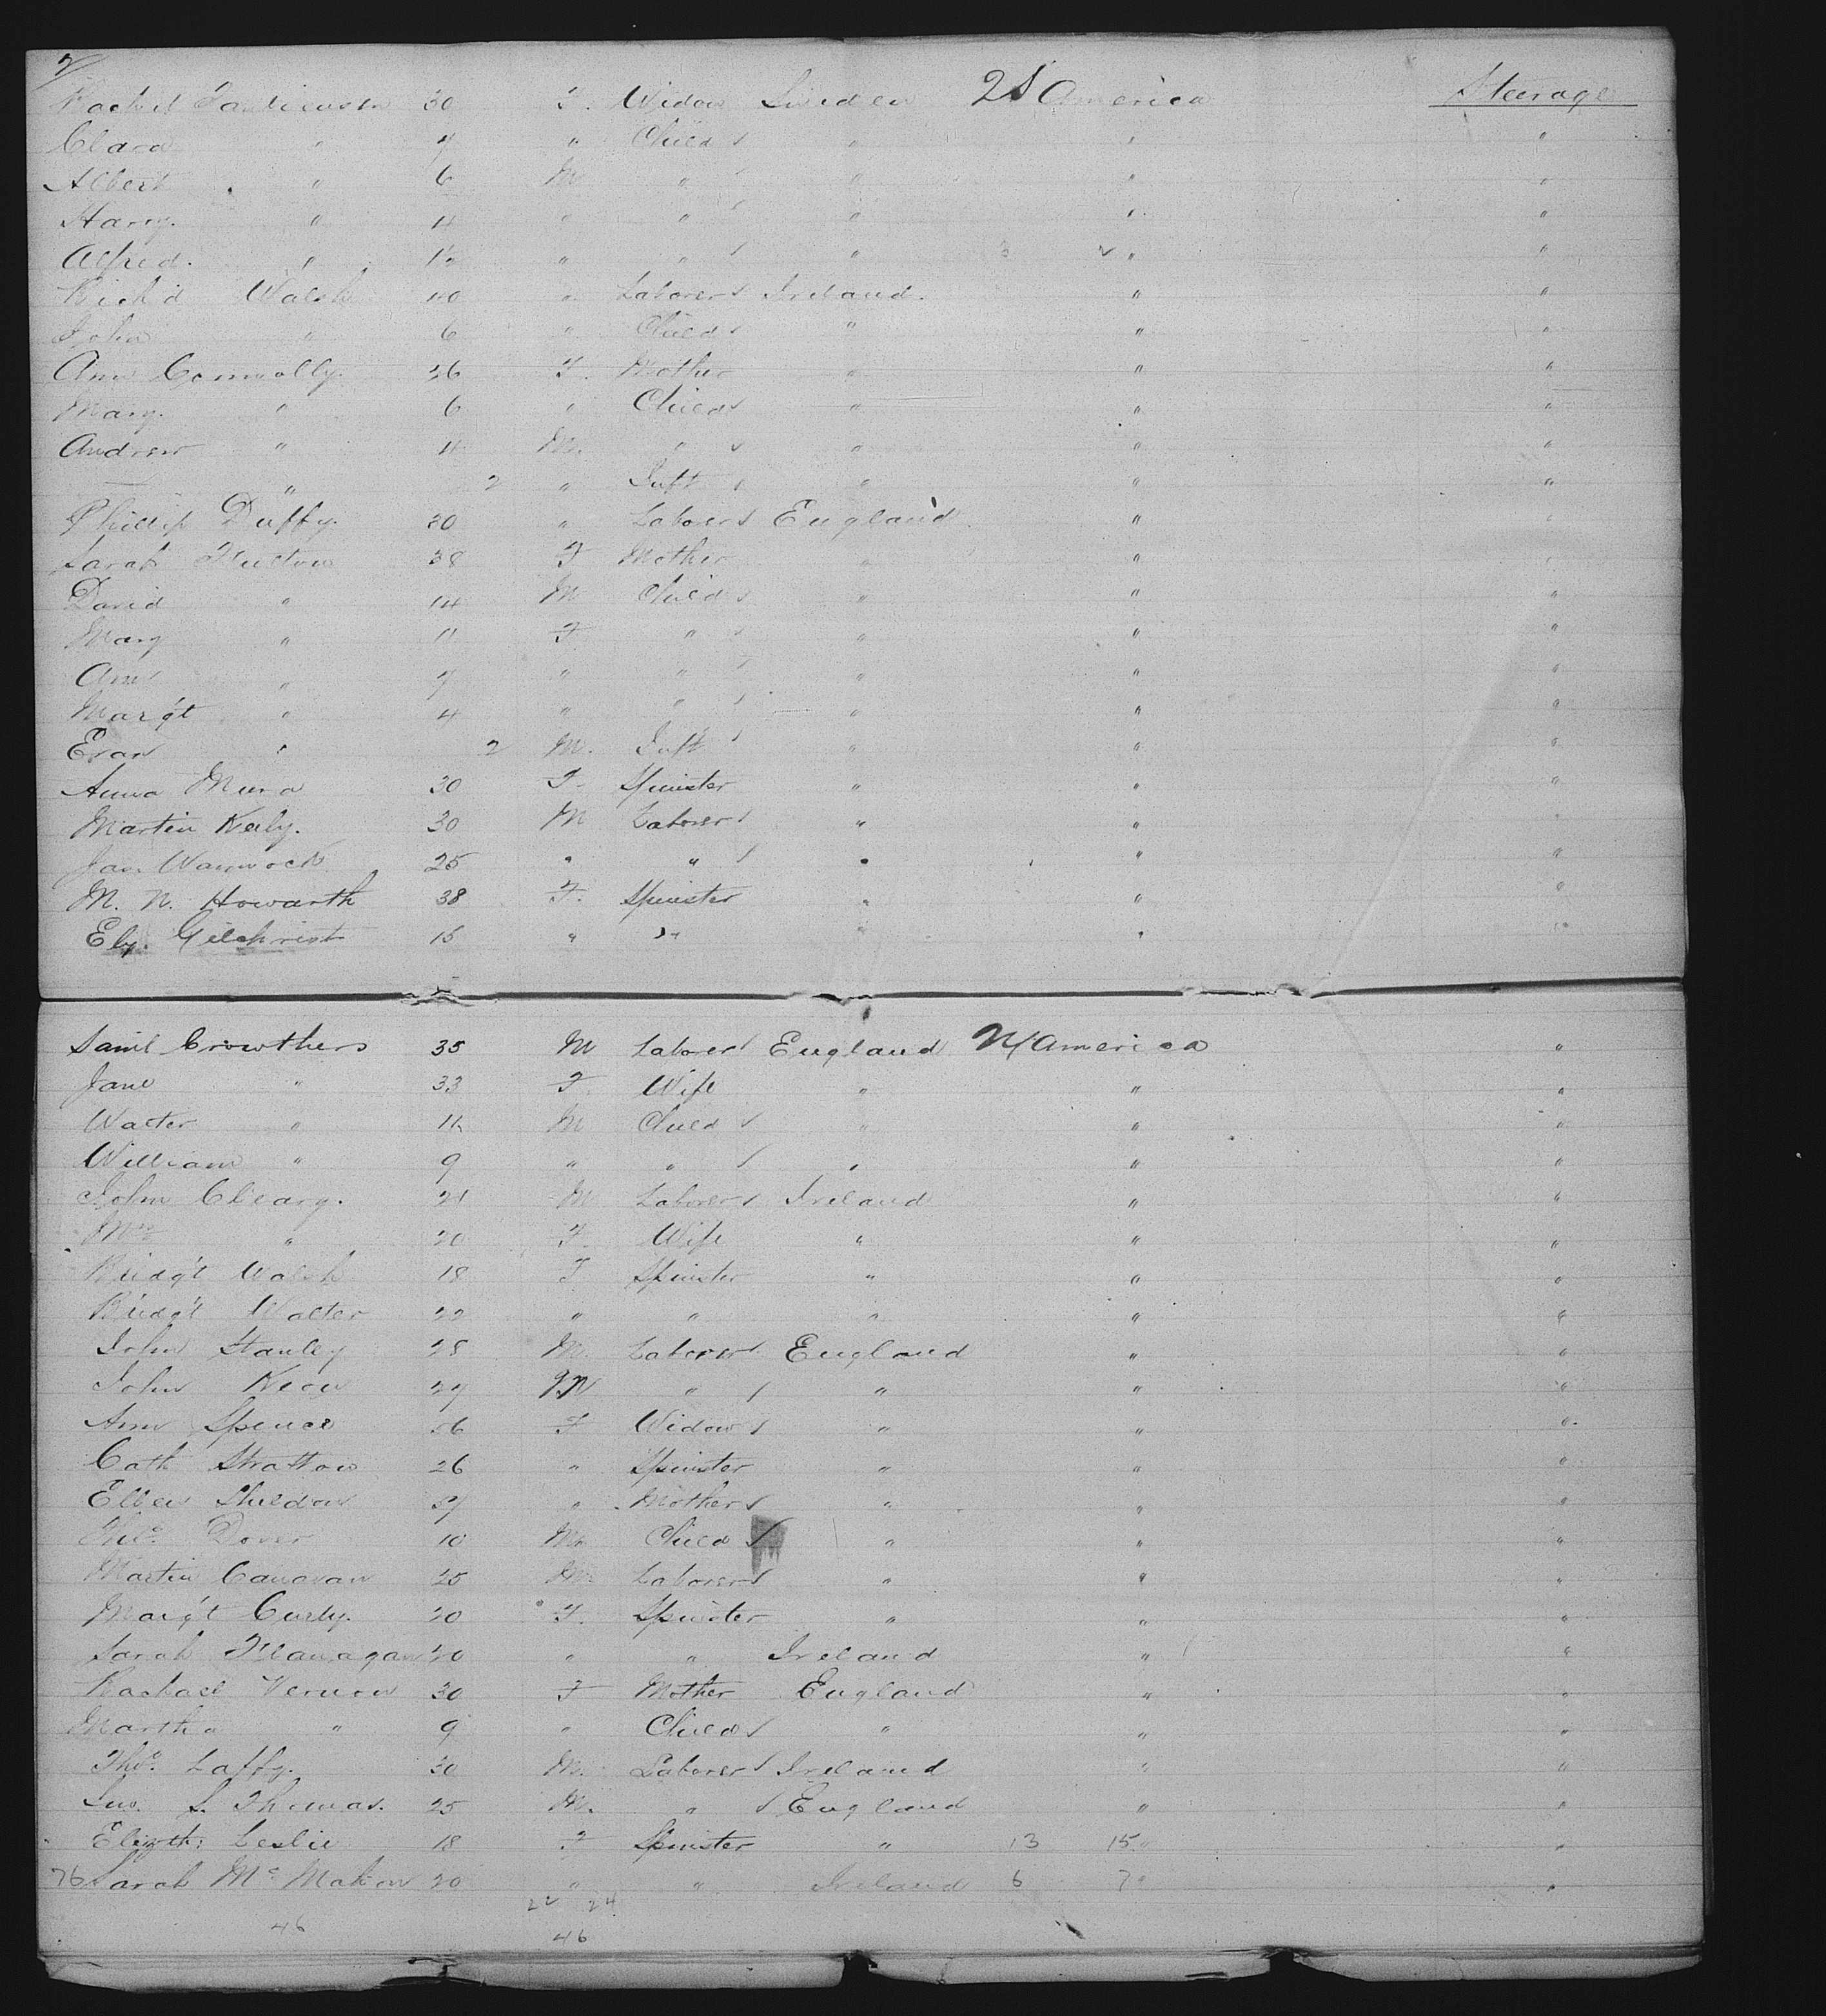 2
Rachel 30 F. Widow Sweden US America Steerage
Clara " 7 " Child " " "
Albert " 6 M " " " "
Harry. " 4 " " " " "
Alfred. " " " " 3 2 " "
Rich'd Walsh 40 " Laborer Ireland. " "
John " 6 " Child " " "
Ann Connolly. 26 F. Mother " " "
Mary. " 6 " Child " " "
Andrew " 4 M. " " " "
— " 2 " Inft " " "
Phillip Duffy. 30 " Laborer England " "
Sarah 38 F Mother " " "
David " 14 M Child " " "
Mary " 11 F " " " "
Ann " 7 " " " " "
Marg't " 4 " " " " "
Evan " 2 M. Inft " " "
Anna 30 F. Spinster " " "
Martin Kealy. 30 M Laborer " " "
Jas. Warnock 25 " " " " "
M. N. Howarth 38 F. Spinster " " "
Elz. Gilchrist 15 " " " " "
Saml Crowthers 35 M Laborer England N America "
Jane " 33 F. Wife " " "
Walter " 11 M Child " " "
William " 9 " " " " "
John Cleary. 21 M Laborer Ireland " "
Mrs " 20 F. Wife " " "
Bridg't Walsh 18 F Spinster " " "
Bridg't Walter 22 " " " " "
John Stanley 28 M. Laborer England " "
John 27 M " " " "
Ann Spence 56 F Widow " " "
Cath Stratton 26 " Spinster " " "
Ellen Sheldon 57 " Mother " " "
Dover 10 M Child " " "
Martin Canavan 25 M Laborer " " "
Marg't Curly. 20 F. Spinster " " "
Sarah Flanagan 20 " " Ireland " "
Rachael Vernon 30 F Mother England " "
Martha " 9 " Child " " "
Thos. Laffy. 30 M. Laborer Ireland " "
Jno. S. Thomas. 25 M. " England " "
Elizth: Leslie 18 F Spinster " 13 15 " "
76 Sarah McMahon 20 " " Ireland 6 7 " "
22 24
46 46